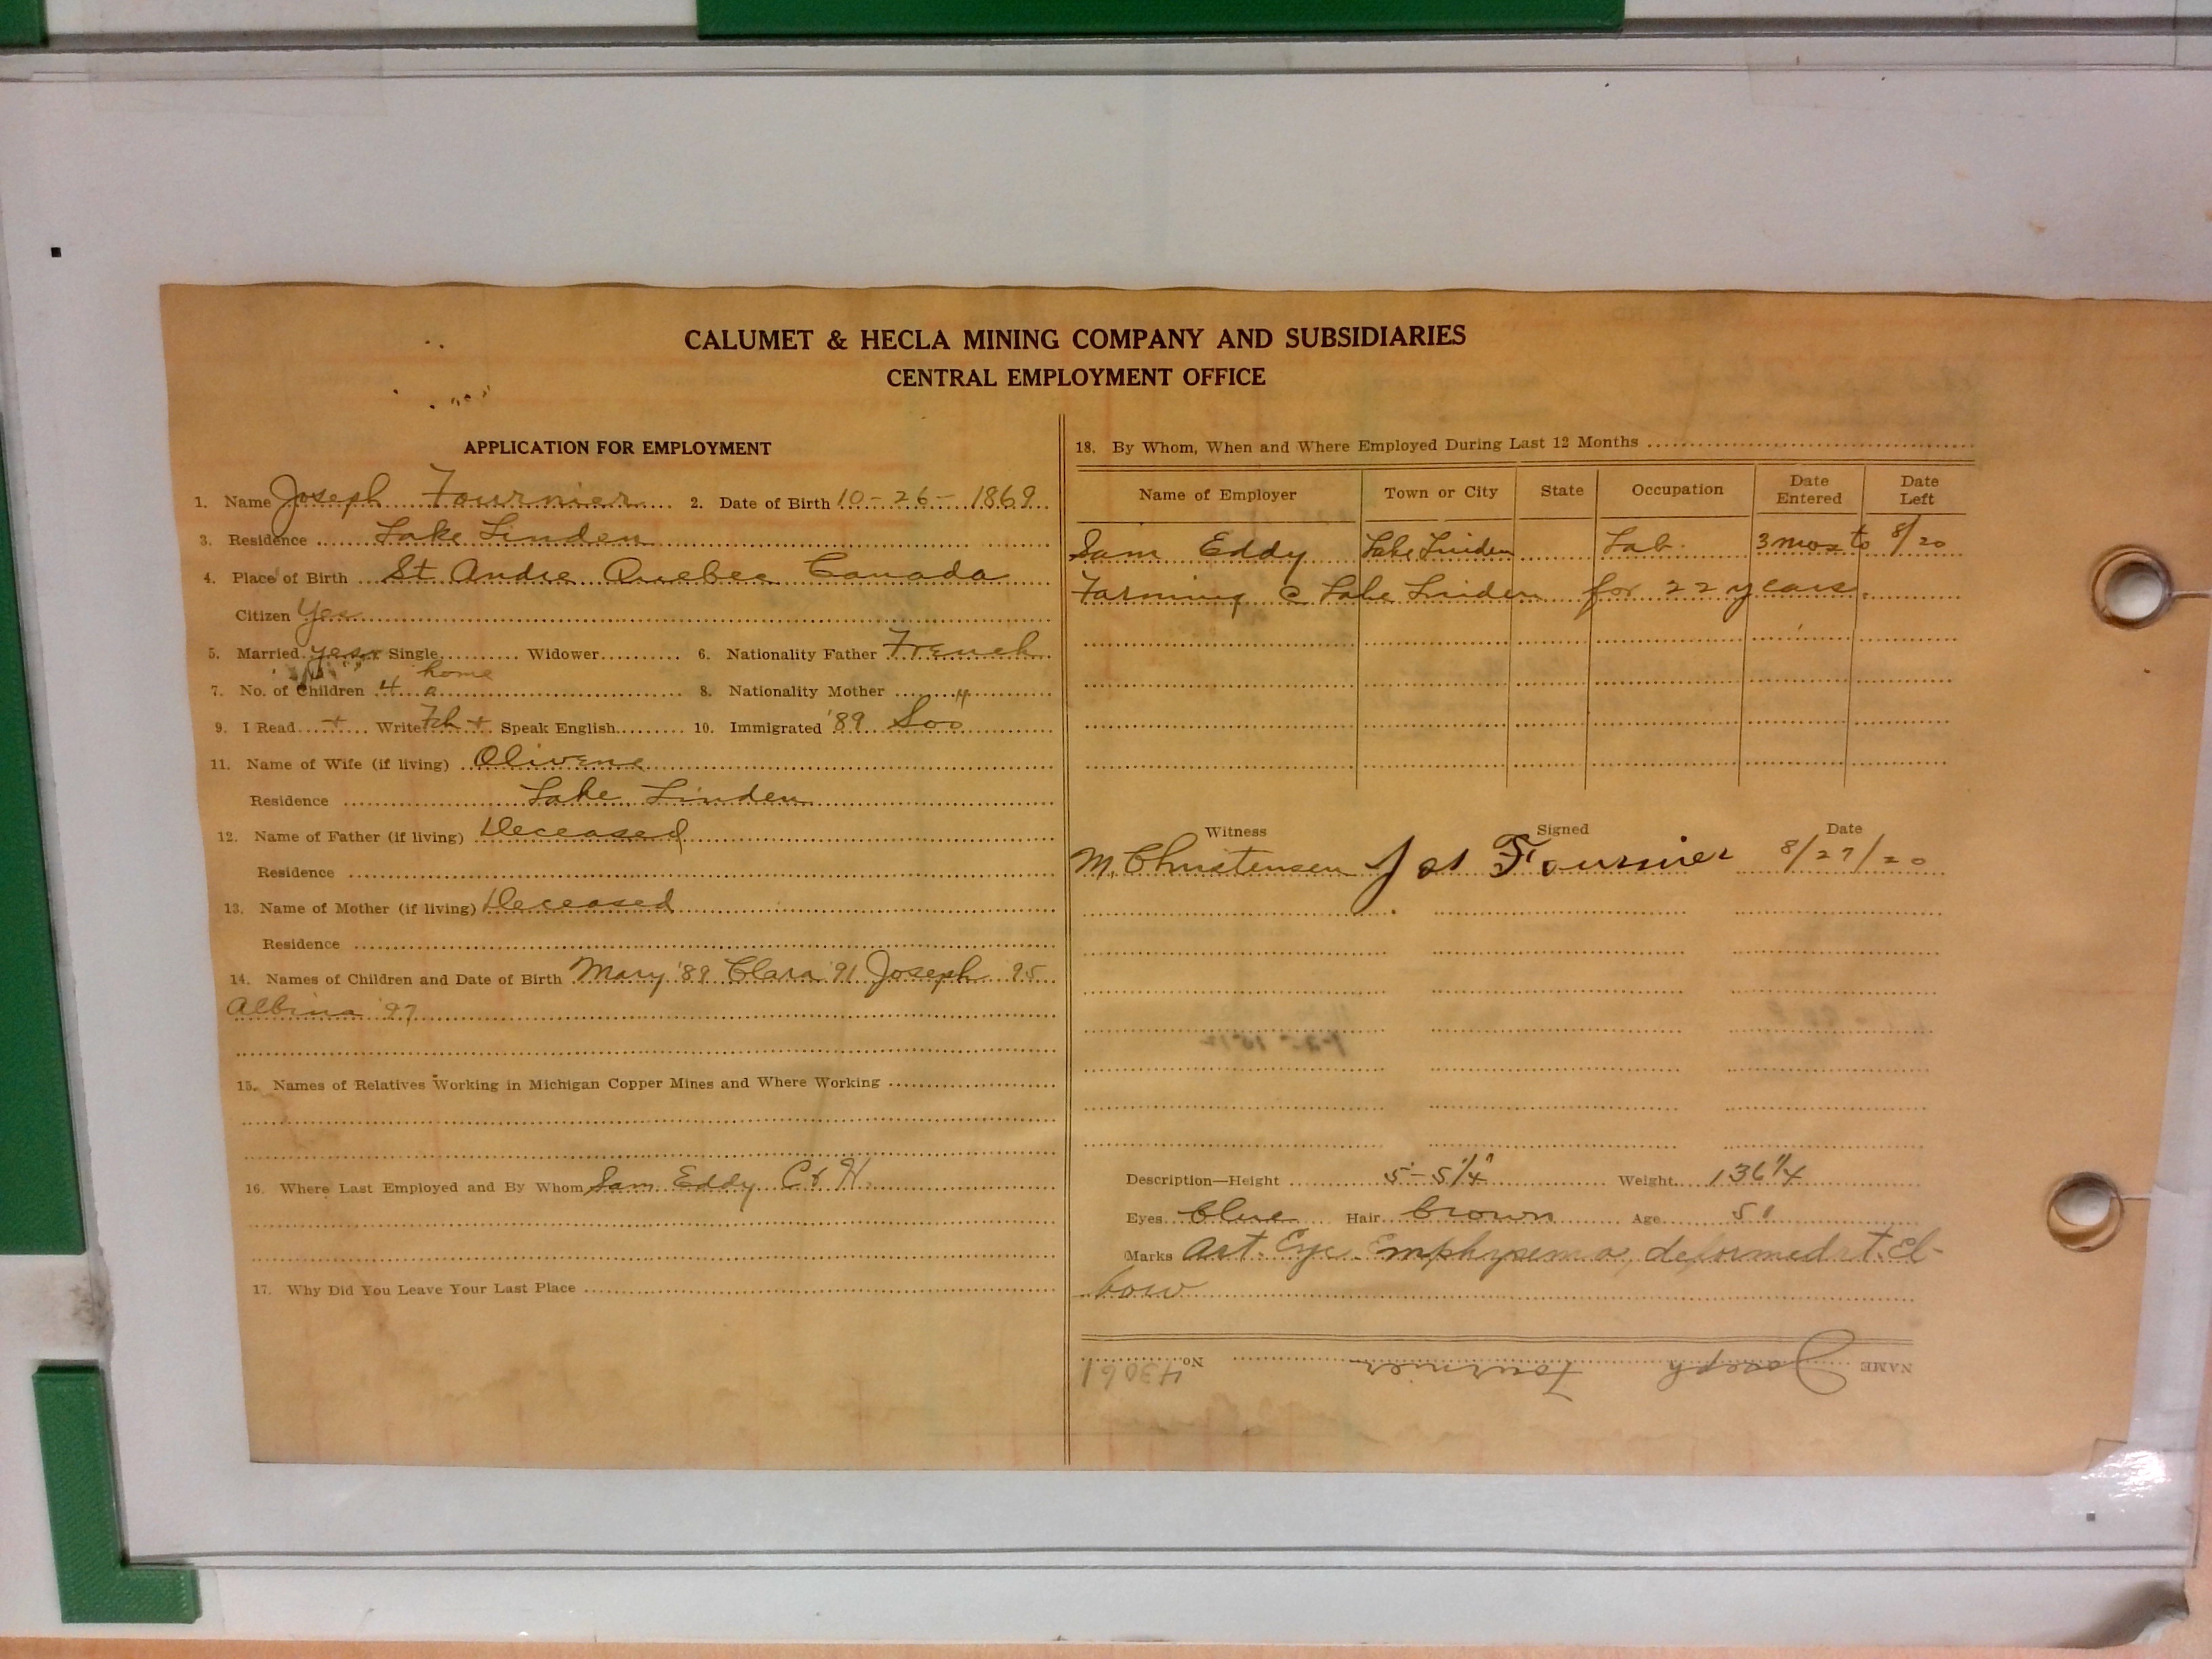 CALUMET & HECLA MINING COMPANY AND SUBSIDIARIES
CENTRAL EMPLOYMENT OFFICE
APPLICATION FOR EMPLOYMENT
1. Name Joseph Fournier 2. Date of Birth 10-26-1869
3. Residence Lake Linden
4. Place of Birth St Andre Quebec Canada
Citizen Yes
5. Married yes Single Widower 6. Nationality Father French
home
7. No. of Children 4 a 8. Nationality Mother "
9. I Read + Write Fch + Speak English 10. Immigrated '89 Soo
11. Name of Wife (if living) Olivene
Residence Lake Linden
12. Name of Father (if living) Deceased
Residence
13. Name of Mother (if living) Deceased
Residence
14. Names of Children and Date of Birth Mary '89 Clara '91 Joseph 95
Albina '97
15. Names of Relatives Working in Michigan Copper Mines and Where Working
16. Where Last Employed and By Whom Sam Eddy C & H.
17. Why Did You Leave Your Last Place
18. By Whom, When and Where Employed During Last 12 Months
Name of Employer Town or City State Occupation Date Entered Date Left
Sam Eddy Lake Linden Lab. 3 mos to 8/20
Farming @ Lake Linden for 22 years.
Witness Signed Date
M. Christensen Jos Fournier 8/27/20
Description—Height 5'-5 1/4" Weight 136 1/4
Eyes blue Hair brown Age 51
Marks Art. Eye Emphysema, deformed rt. El-
bow
NAME Joseph Fournier No. 43061